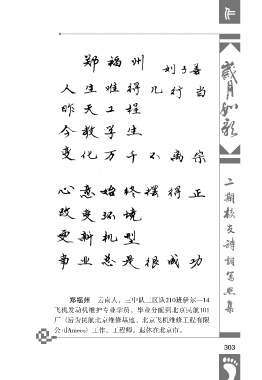 郑福州
刘子善
人生难得几行当
昨天工程
今教学生
变化万千不离宗
心意始终摆得正
改变环境
更新机型
事业总是很成功
郑福州 云南人，三中队二区队210班伊尔—14
飞机发动机维护专业学员。毕业分配到北京民航101
厂（后为民航北京维修基地、北京飞机维修工程有限
公司Ameco）工作。工程师。退休在北京市。
岁月如歌
二期校友诗词写照集
303